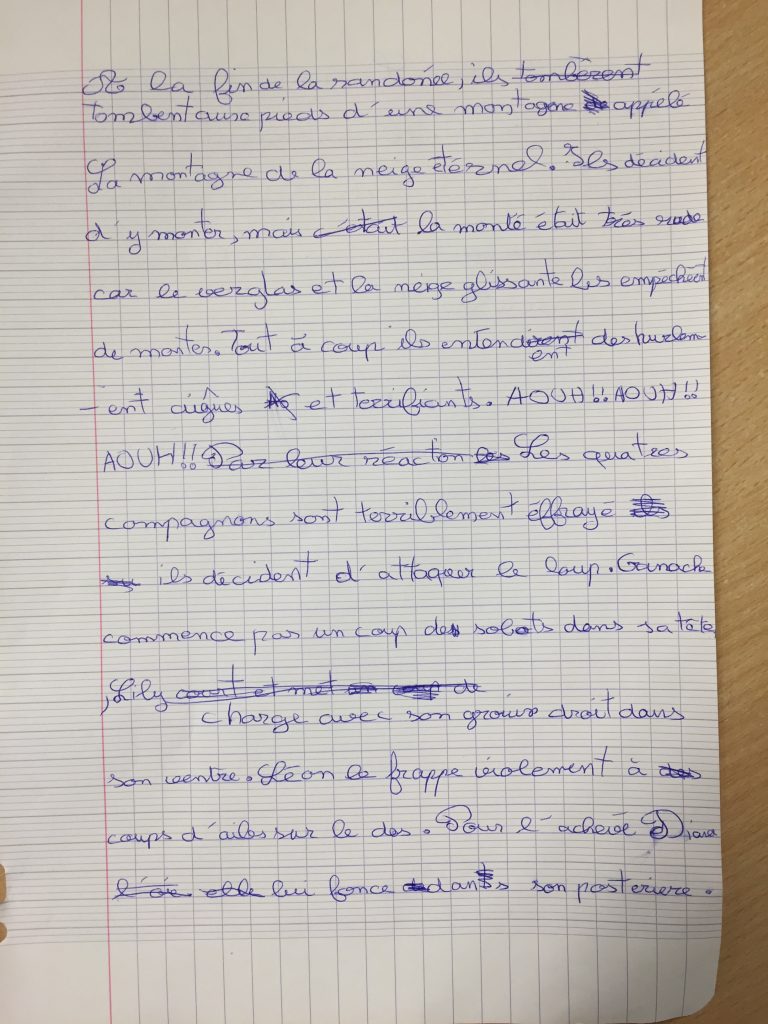 A la fin de la randonée, ils tombèrent
tombent aux pieds d'une montagne appelé
La montagne de la neige éternel. Ils décident
d'y monter, mais c'était la monté était très rude
car le verglas et la neige glissante les empêchent
de monter. Tout à coup ils entendirent des hurlem
ent
-ent aigûes et terrifiants. AOUH!! AOUH!!
AOUH!! Par leur réacton les Les quatres
compagnons sont terriblement éffrayé
ils décident d'attaquer le loup. Ganache
commence par un coup de sabots dans sa tête
, Lily court et met un coup de
charge avec son grouin droit dans
son ventre. Léon le frappe violement à des
coups d'ailes sur le dos. Pour l'achevé Diana
elle lui fonce dans son posteriere.